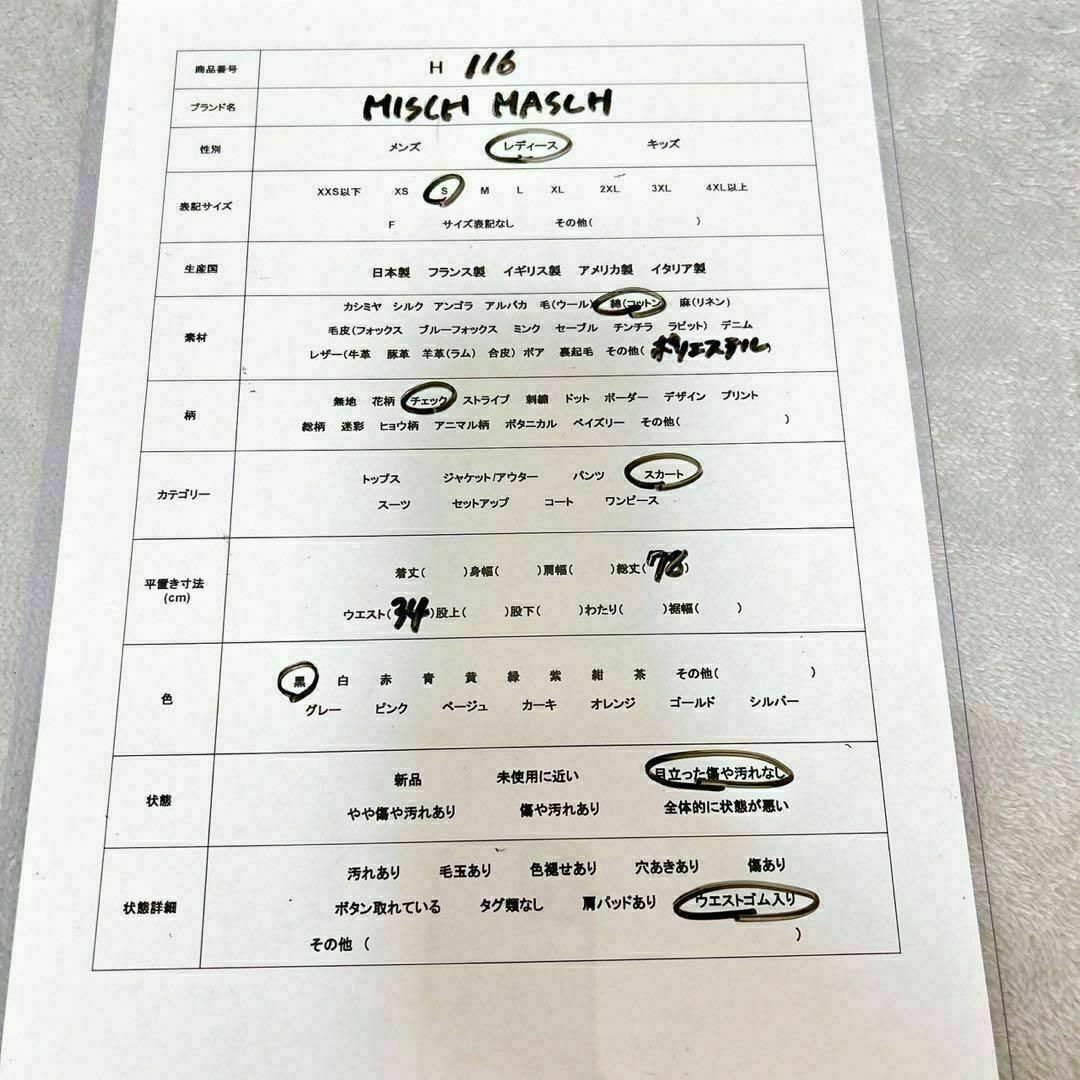 商品番号 H 116
ブランド名 MISCH MASCH
性別 メンズ レディース キッズ
表記サイズ XXS以下 XS S M L XL 2XL 3XL 4XL以上
F サイズ表記なし その他( )
生産国 日本製 フランス製 イギリス製 アメリカ製 イタリア製
カシミヤ シルク アンゴラ アルパカ 毛(ウール) 綿(コットン 麻(リネン)
素材 毛皮(フォックス ブルーフォックス ミンク セーブル チンチラ ラビット) デニム
レザー(牛革 豚革 羊革(ラム) 合皮) ボア 裏起毛 その他( ポリエステル)
柄 無地 花柄 チェック ストライプ 刺繍 ドット ボーダー デザイン プリント
総柄 迷彩 ヒョウ柄 アニマル柄 ボタニカル ペイズリー その他( )
カテゴリー トップス ジャケット/アウター パンツ スカート
スーツ セットアップ コート ワンピース
平置き寸法 着丈( )身幅( )肩幅( )総丈(78)
(cm) ウエスト(34)股上( )股下( )わたり( )裾幅( )
色 黒 白 赤 青 黄 緑 紫 紺 茶 その他( )
グレー ピンク ベージュ カーキ オレンジ ゴールド シルバー
状態 新品 未使用に近い 目立った傷や汚れなし
やや傷や汚れあり 傷や汚れあり 全体的に状態が悪い
汚れあり 毛玉あり 色褪せあり 穴あきあり 傷あり
状態詳細 ボタン取れている タグ類なし 肩パッドあり ウエストゴム入り
その他 ( )